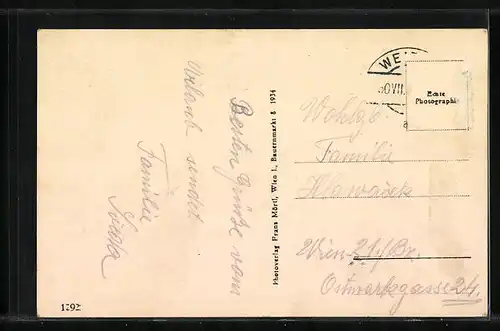 Besten Grüsse vom
Urlaub sendet
Familie
Photoverlag Franz Mörtl, Wien I., Bauernmarkt 8 1934
WE
Echte
Photographie
Wohlg.
Familie
Wien 21./Br.
Ostmarkgasse 24.
1792